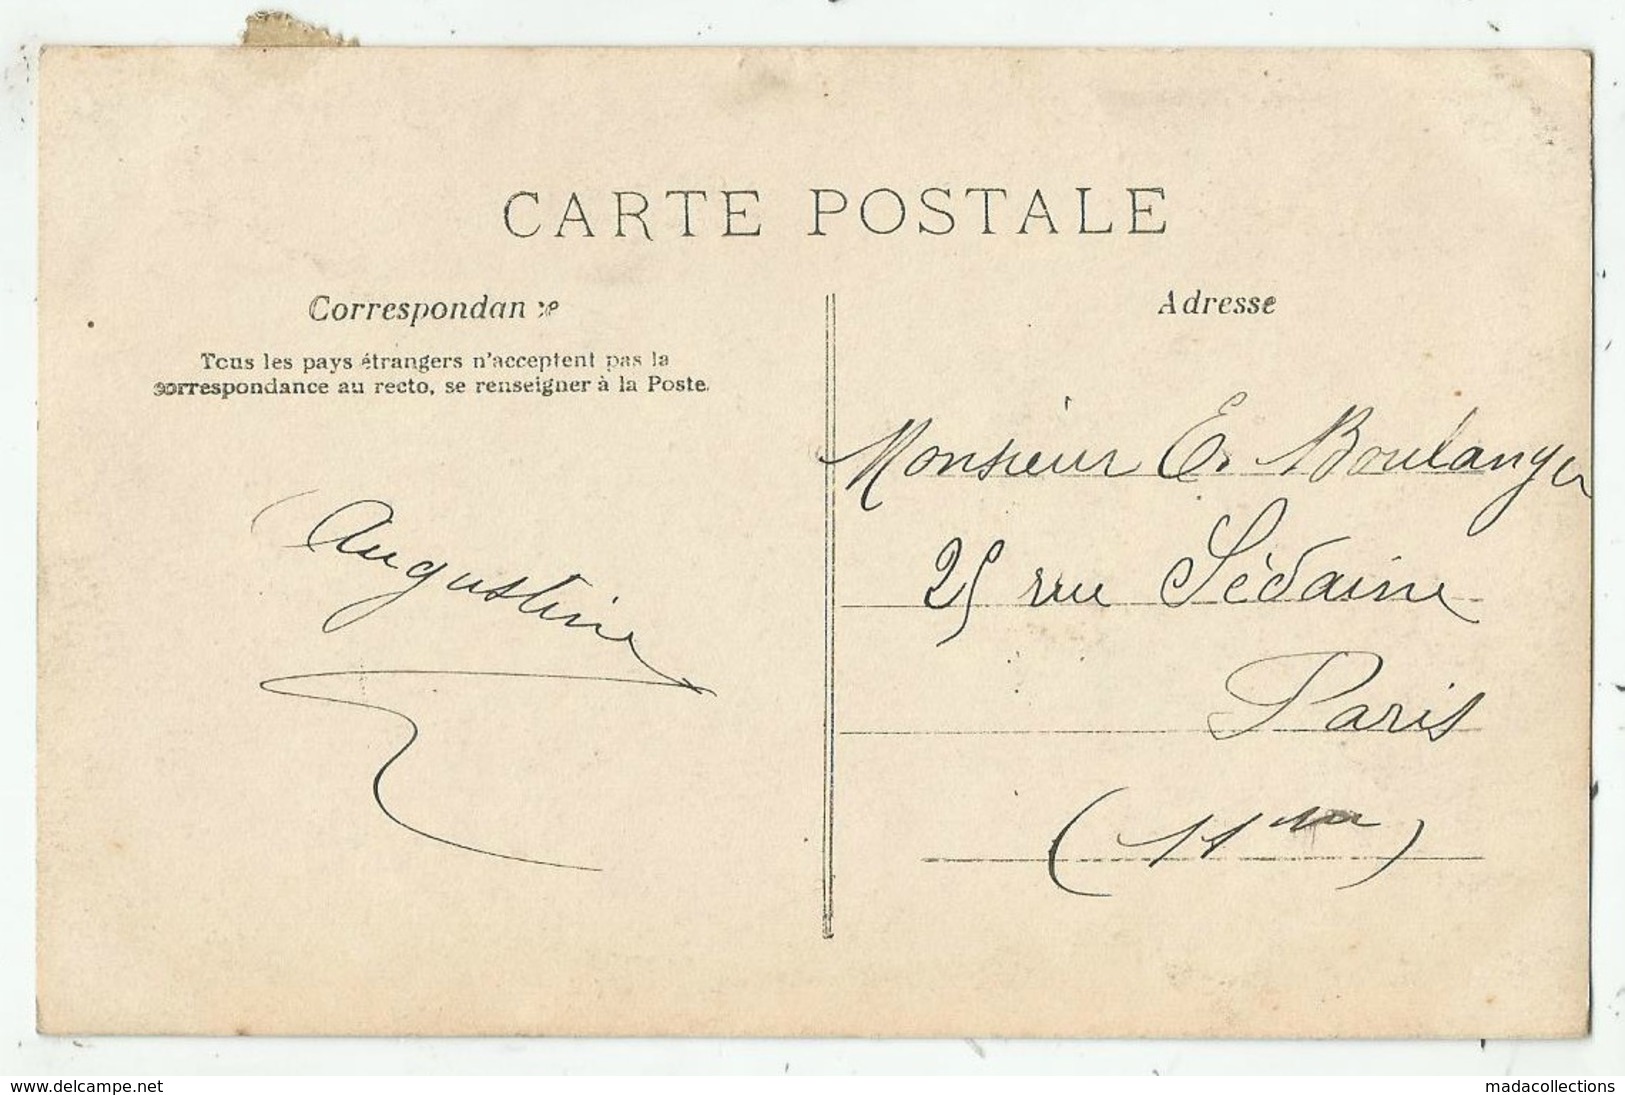 CARTE POSTALE
Correspondance
Tous les pays étrangers n'acceptent pas la
correspondance au recto, se renseigner à la Poste.
Augustine
Adresse
Monsieur E. Boulanger
25 rue Sédaine
Paris
(11me)
www.delcampe.net
madacollections